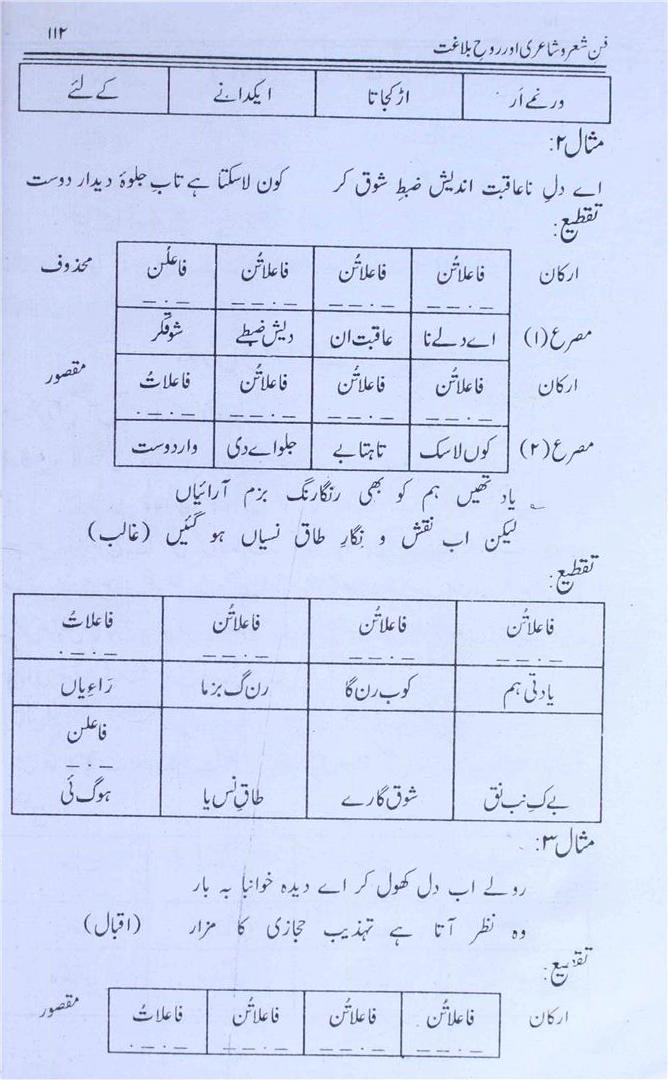 فن شعر و شاعری اور روحِ بلاغت ۱۱۲
ورنغمے اَر اڑکجاتا ایکدانے کے لئے
مثال ۲:
اے دلِ ناعاقبت اندیش ضبطِ شوق کر کون لاسکتا ہے تاب جلوۂ دیدار دوست
تقطیع:
ارکان فاعلاتُن فاعلاتُن فاعلاتُن فاعلُن محذوف
— · — — — · — — — · — — — · —
مصرع (۱) اے دلے نا عاقبت ان دیش ضبطے شوقکر
ارکان فاعلاتُن فاعلاتُن فاعلاتُن فاعلاتُ مقصور
— · — — — · — — — · — — — · — ·
مصرع (۲) کوں لاسک تاہتابے جلواے دی داردوست
یاد تھیں ہم کو بھی رنگارنگ بزم آرائیاں
لیکن اب نقش و نِگارِ طاق نسیاں ہو گئیں (غالب)
تقطیع:
فاعلاتُن فاعلاتُن فاعلاتُن فاعلاتُ
— · — — — · — — — · — — — · — ·
یادتی ہم کوب رن گا رن گ بزما رَاءیاں
فاعلن
— · —
بےکِ نب نق شوق گارے طاقِ نس یا ہوگ ئی
مثال ۳:
رولے اب دل کھول کر اے دیدہ خوانبا بہ بار
وہ نظر آتا ہے تہذیب حجازی کا مزار (اقبال)
تقطیع:
ارکان فاعلاتُن فاعلاتُن فاعلاتُن فاعلاتُ مقصور
— · — — — · — — — · — — — · — ·